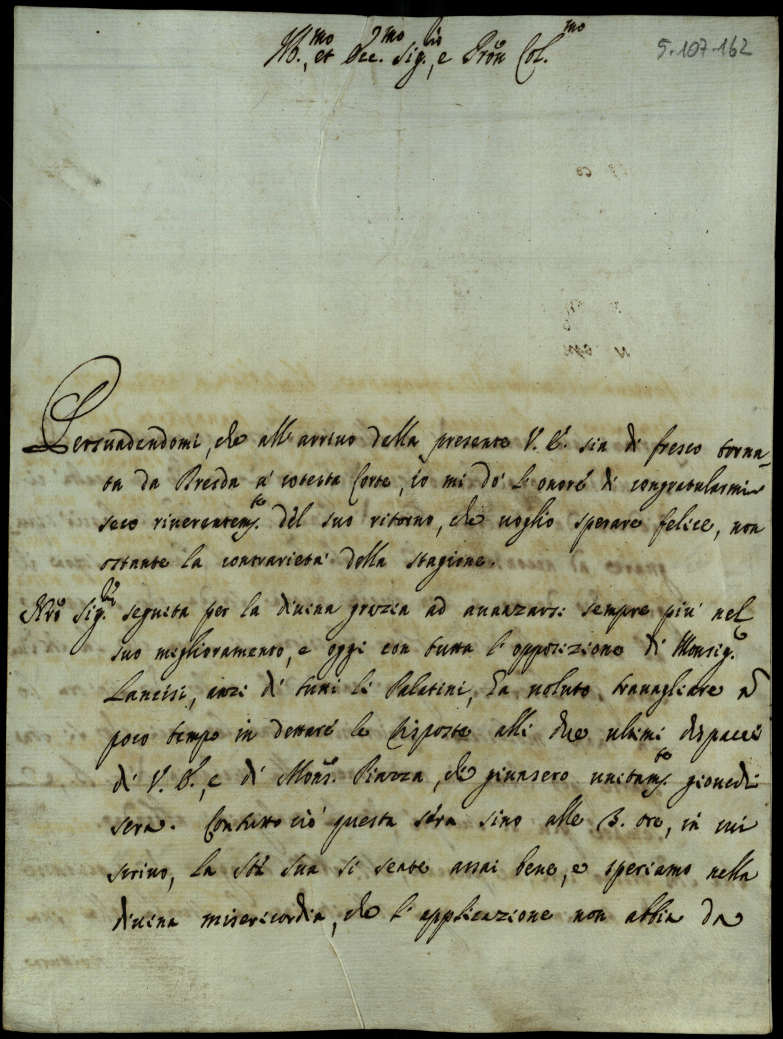 Ill.mo, et Ecc.mo Sig.re, e Pron Col.mo
5-107-162
Persuadendomi, che all'arrivo della presente V. E. sia di fresco torna-
ta da Breda a' cotesta Corte, io mi dò l'onore di congratularmi
seco riverentem.te del suo ritorno, che voglio sperare felice, non
ostante la contrarietà della stagione.
Nro Sig.re seguita per la divina grazia ad avanzarsi sempre più nel
suo miglioramento, e oggi con tutta l'opposizione di Monsig.
Lancisi, anzi di tutti li Palatini, ha voluto travagliare
poco tempo in dettare le risposte alli due ultimi dispacci
di V. E., e di Mons. Piazza, che giunsero unitam.te giovedì
sera. Contutto ciò questa sera sino alle 3. ore, in cui
scrivo, la Stà sua si sente assai bene, e speriamo nella
divina misericordia, che l'applicazione non abbia da